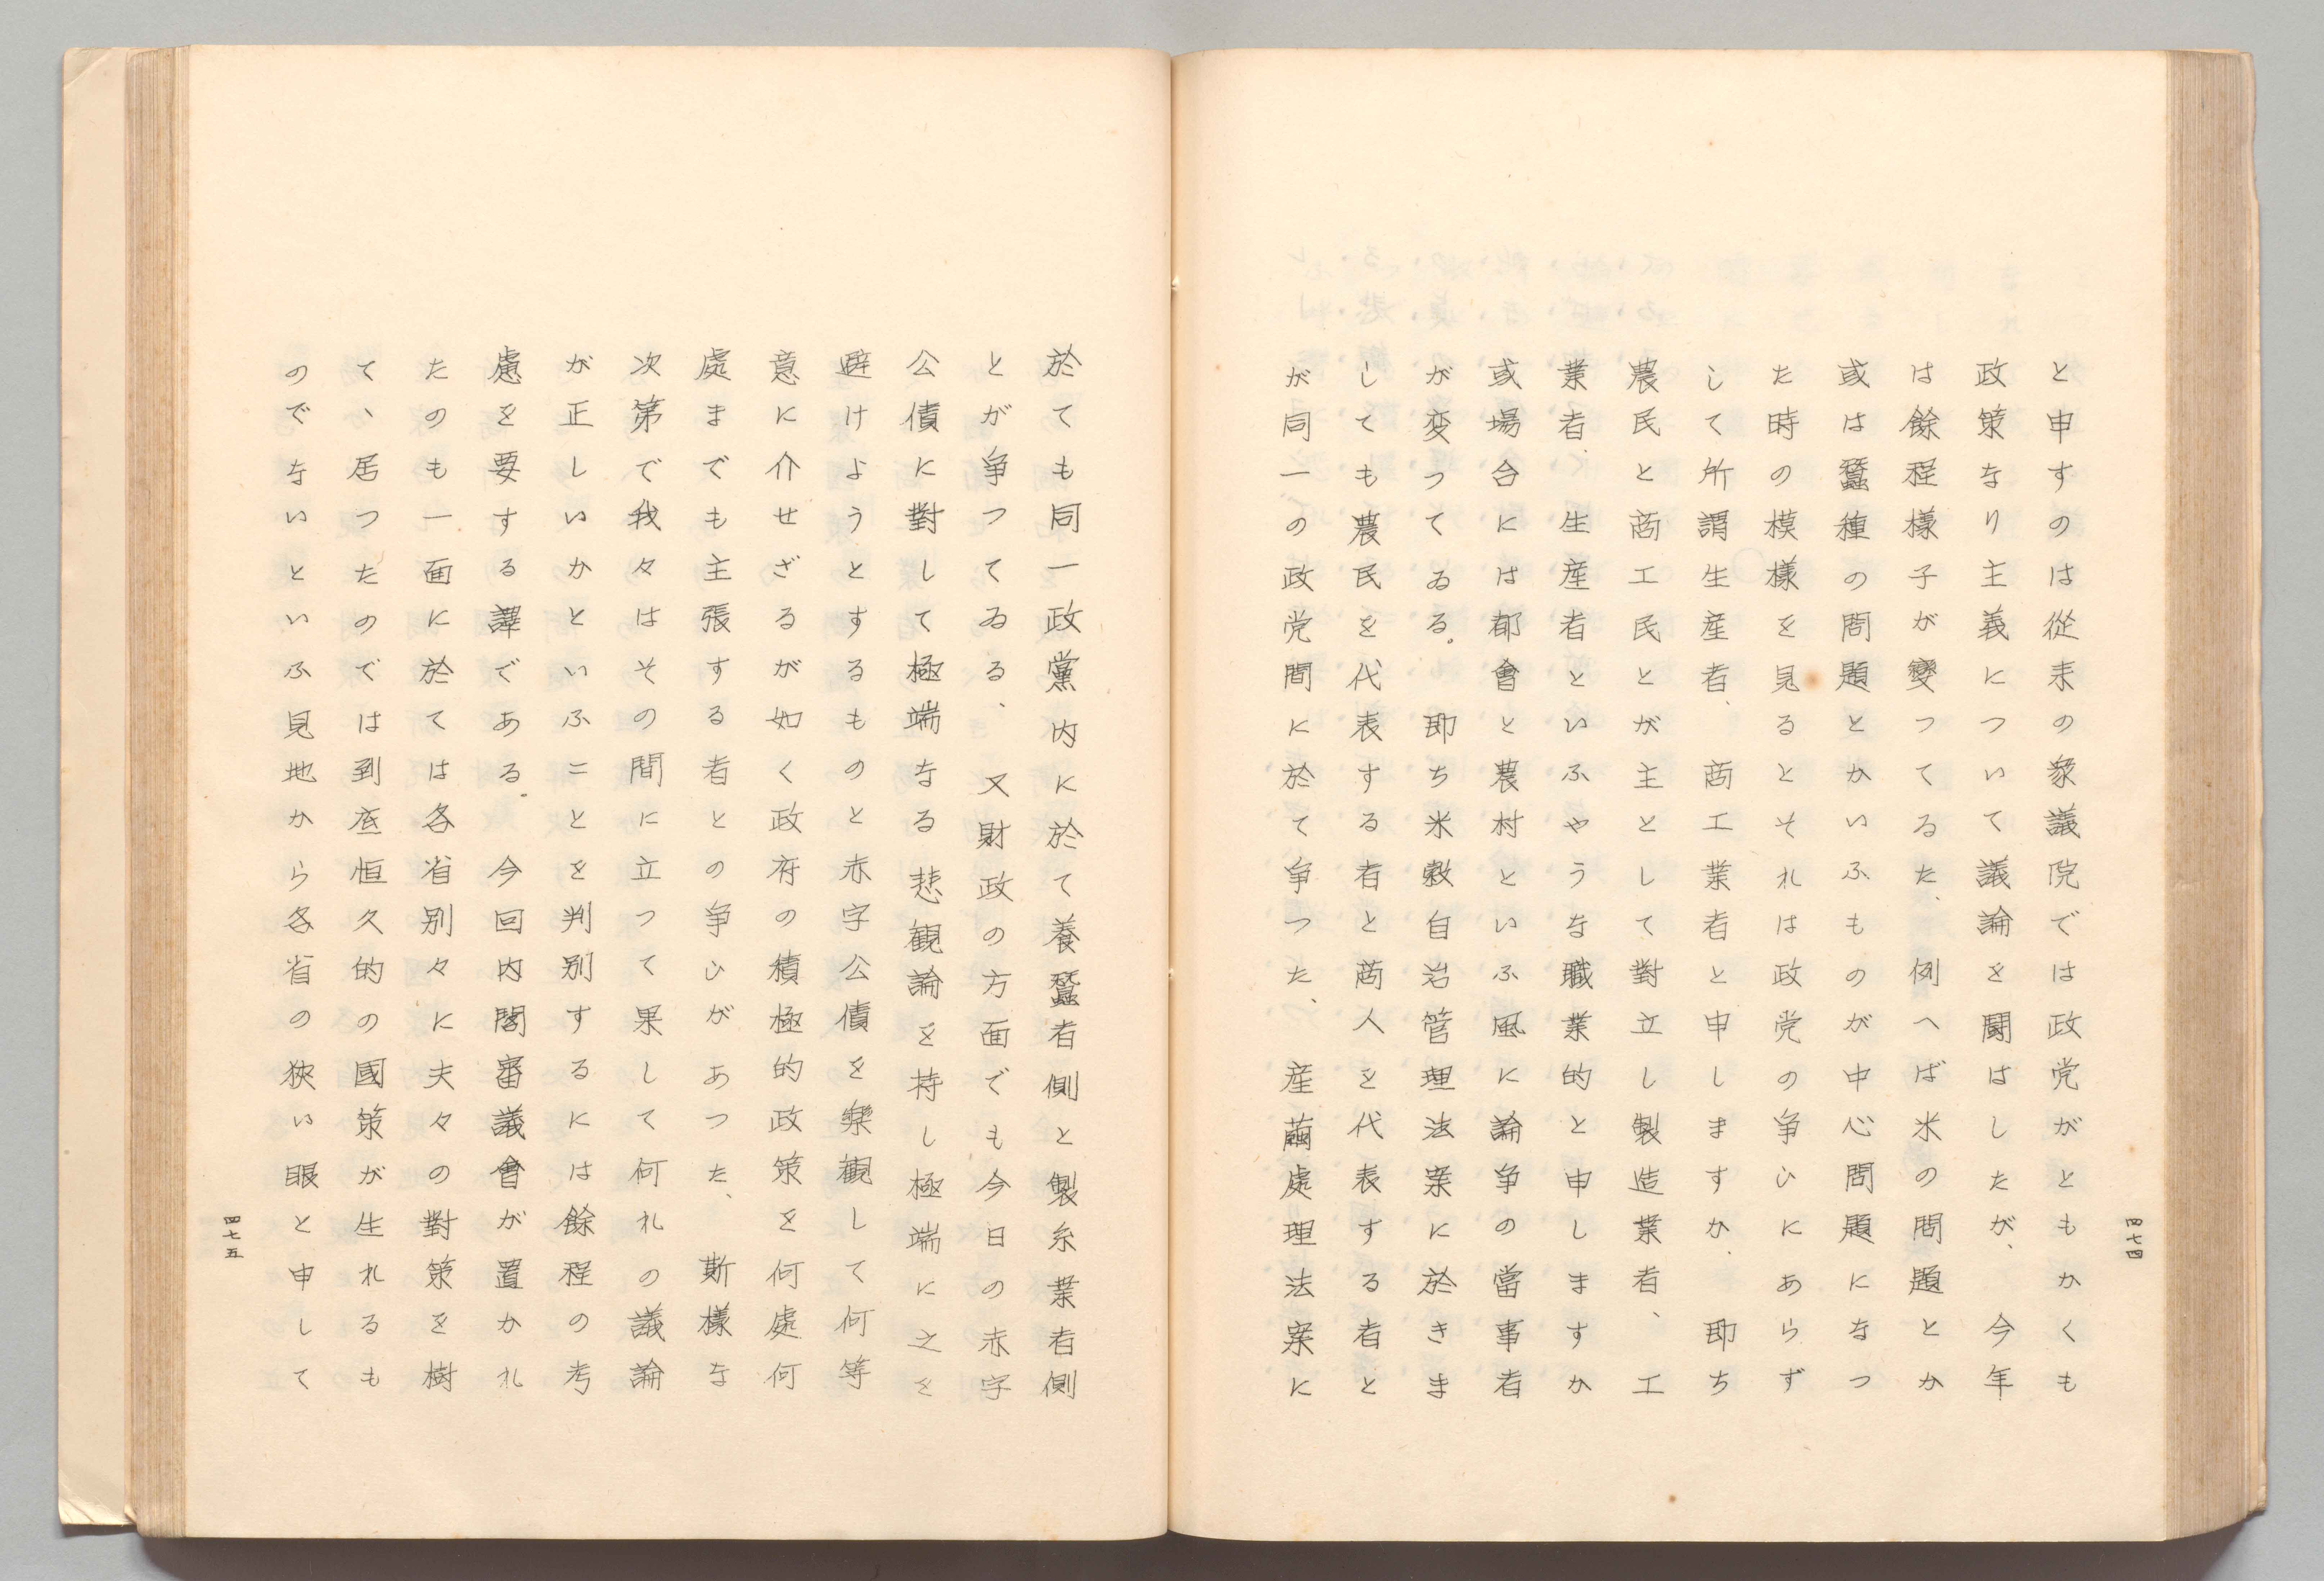 と申すのは從来の衆議院では政党がともかくも
政策なり主義について議論を鬪はしたが、今年
は餘程樣子が變つてゐた、例へば米の問題とか
或は蠶種の問題とかいふものが中心問題になつ
た時の模樣を見るとそれは政党の争ひにあらず
して所謂生産者、商工業者と申しますか、即ち
農民と商工民とが主として對立し製造業者、工
業者、生産者といふやうな職業的と申しますか
或場合には都會と農村といふ風に論争の當事者
が変つてゐる。即ち米穀自治管理法案に於きま
しても農民を代表する者と商人を代表する者と
が同一の政党間に於て争つた、産繭處理法案に
四七四
於ても同一政黨内に於て養蠶者側と製糸業者側
とが争つてゐる、又財政の方面でも今日の赤字
公債に對して極端なる悲観論を持し極端に之を
避けようとするものと赤字公債を樂観して何等
意に介せざるが如く政府の積極的政策を何處何
處までも主張する者との争ひがあつた、斯樣な
次第で我々はその間に立つて果して何れの議論
が正しいかといふことを判別するには餘程の考
慮を要する譯である。今回内閣審議會が置かれ
たのも一面に於ては各省別々に夫々の對策を樹
て、居つたのでは到底恒久的の國策が生れるも
のでないといふ見地から各省の狹い眼と申して
四七五